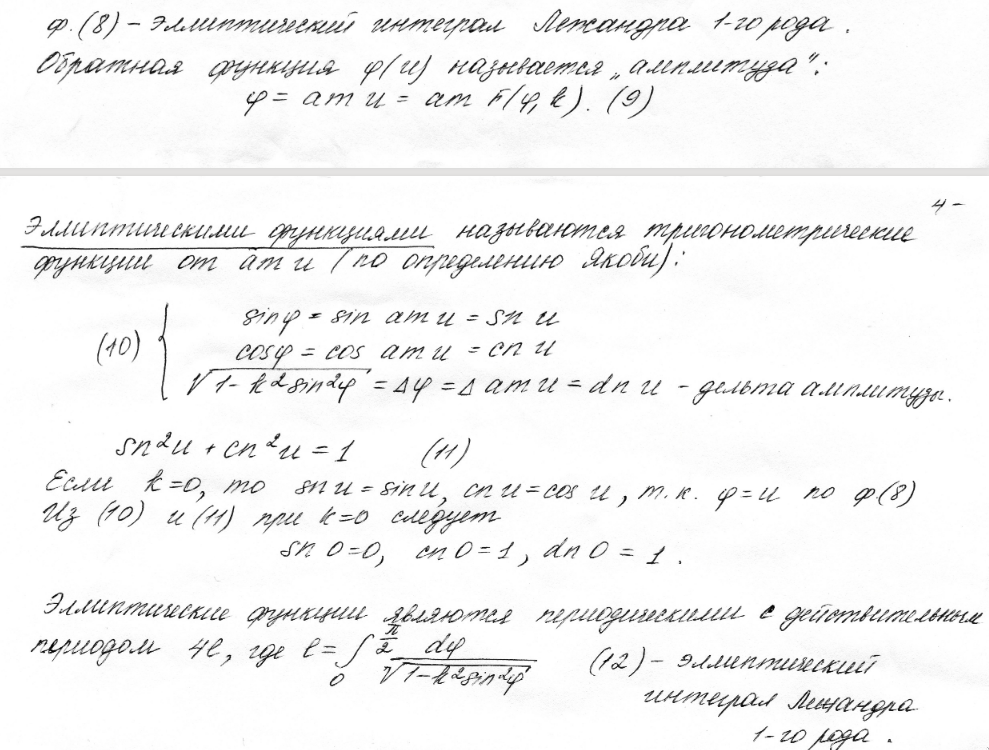 ф. (8) – эллиптический интеграл Лежандра 1-го рода.
Обратная функция φ(u) называется „амплитуда":
φ = am u = am F(φ, k). (9)
4 –
Эллиптическими функциями называются тригонометрические
функции от am u (по определению Якоби):
sinφ = sin am u = sn u
(10) cosφ = cos am u = cn u
√(1-k²sin²φ) = Δφ = Δ am u = dn u – дельта амплитуды.
sn²u + cn²u = 1 (11)
Если k=0, то sn u = sin u, cn u = cos u, т.к. φ=u по ф.(8)
Из (10) и (11) при k=0 следует
sn 0=0, cn 0=1, dn 0 = 1.
Эллиптические функции являются периодическими с действительным
периодом 4ℓ, где ℓ = ∫₀^(π/2) dφ/√(1-k²sin²φ) (12) – эллиптический
интеграл Лежандра
1-го рода.